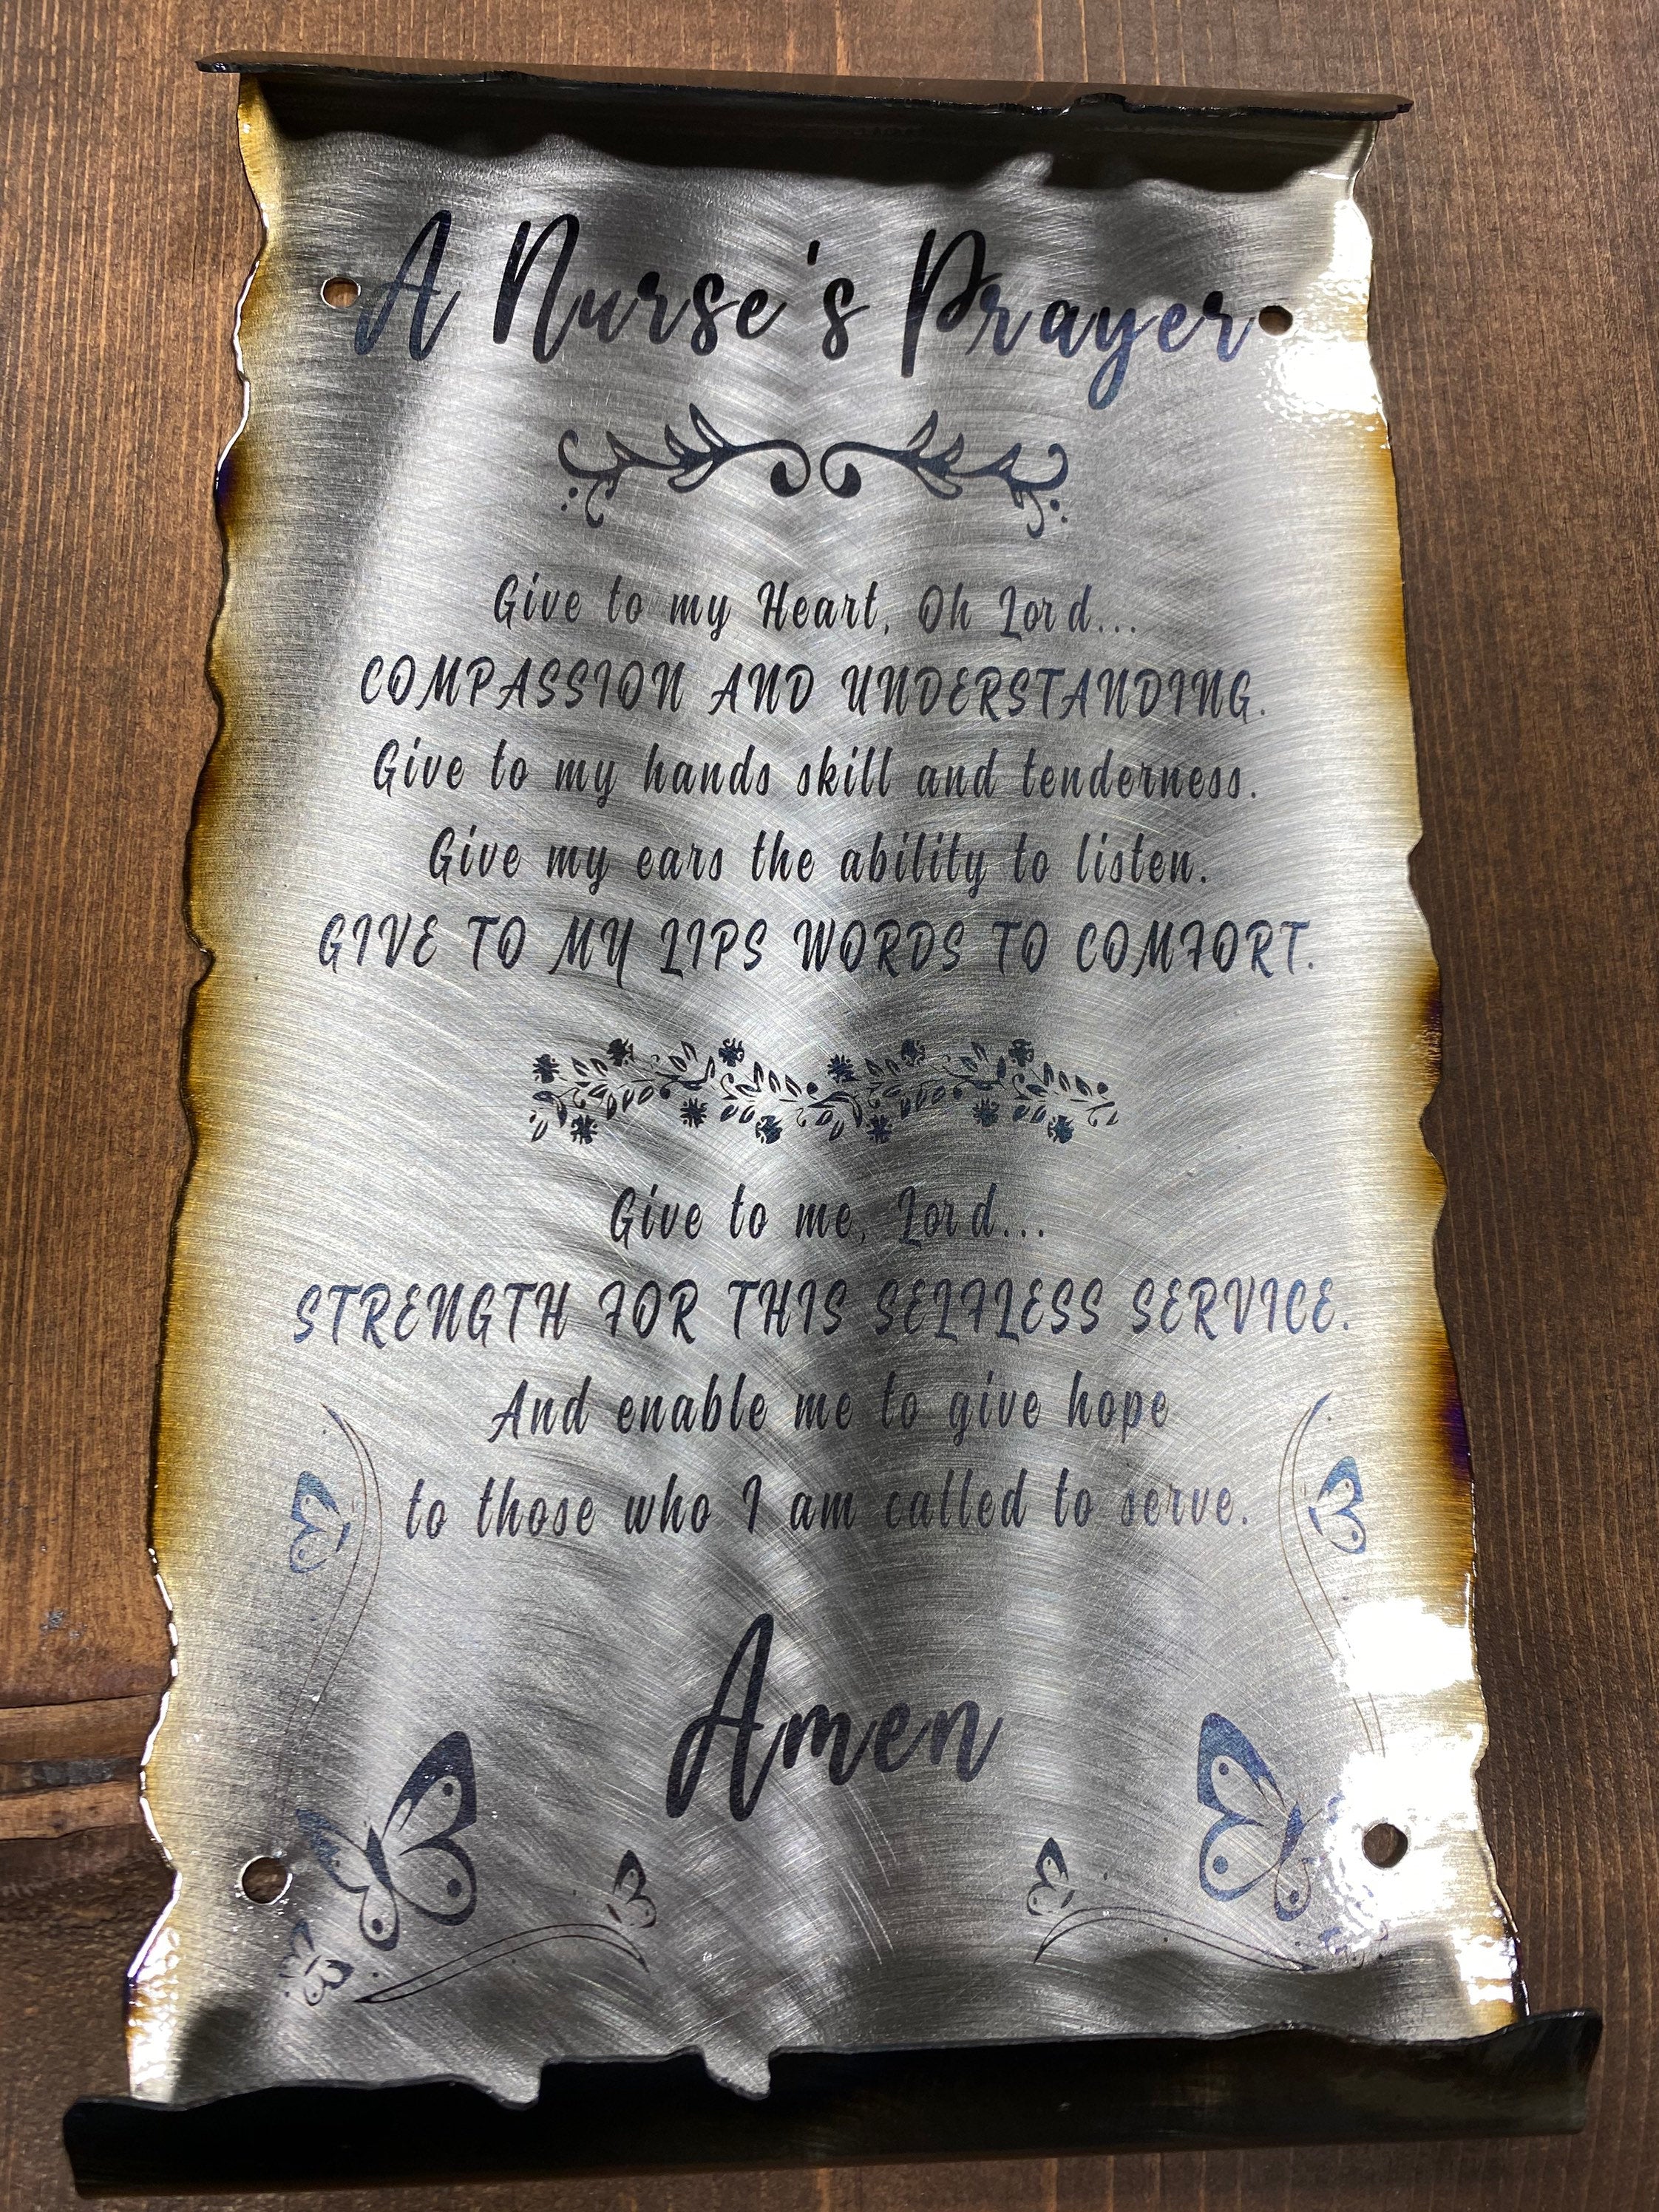 A Nurse's Prayer
Give to my Heart, Oh Lord...
COMPASSION AND UNDERSTANDING.
Give to my hands skill and tenderness.
Give my ears the ability to listen.
GIVE TO MY LIPS WORDS TO COMFORT.
Give to me, Lord...
STRENGTH FOR THIS SELFLESS SERVICE.
And enable me to give hope
to those who I am called to serve.
Amen